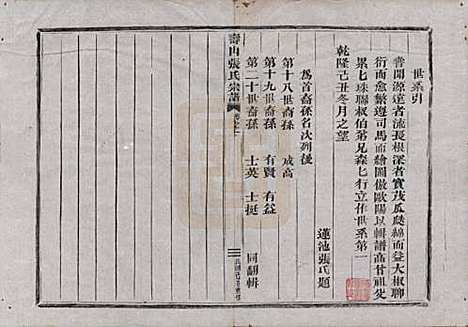 世系引
嘗聞源遠者流長根深者實茂瓜瓞綿而益大椒聊
衍而愈繁遵司馬而繪圖倣歐陽以輯譜高曾祖父
累七珠聯椒伯弟兄森七行立作世系第一
乾隆己丑冬月之望
蓮池張氏題
為首裔孫名次列後
第十八世裔孫 成高
第十九世裔孫 有賢 有益
第二十世裔孫 士英 士挺
同翻輯
壽山張氏宗譜